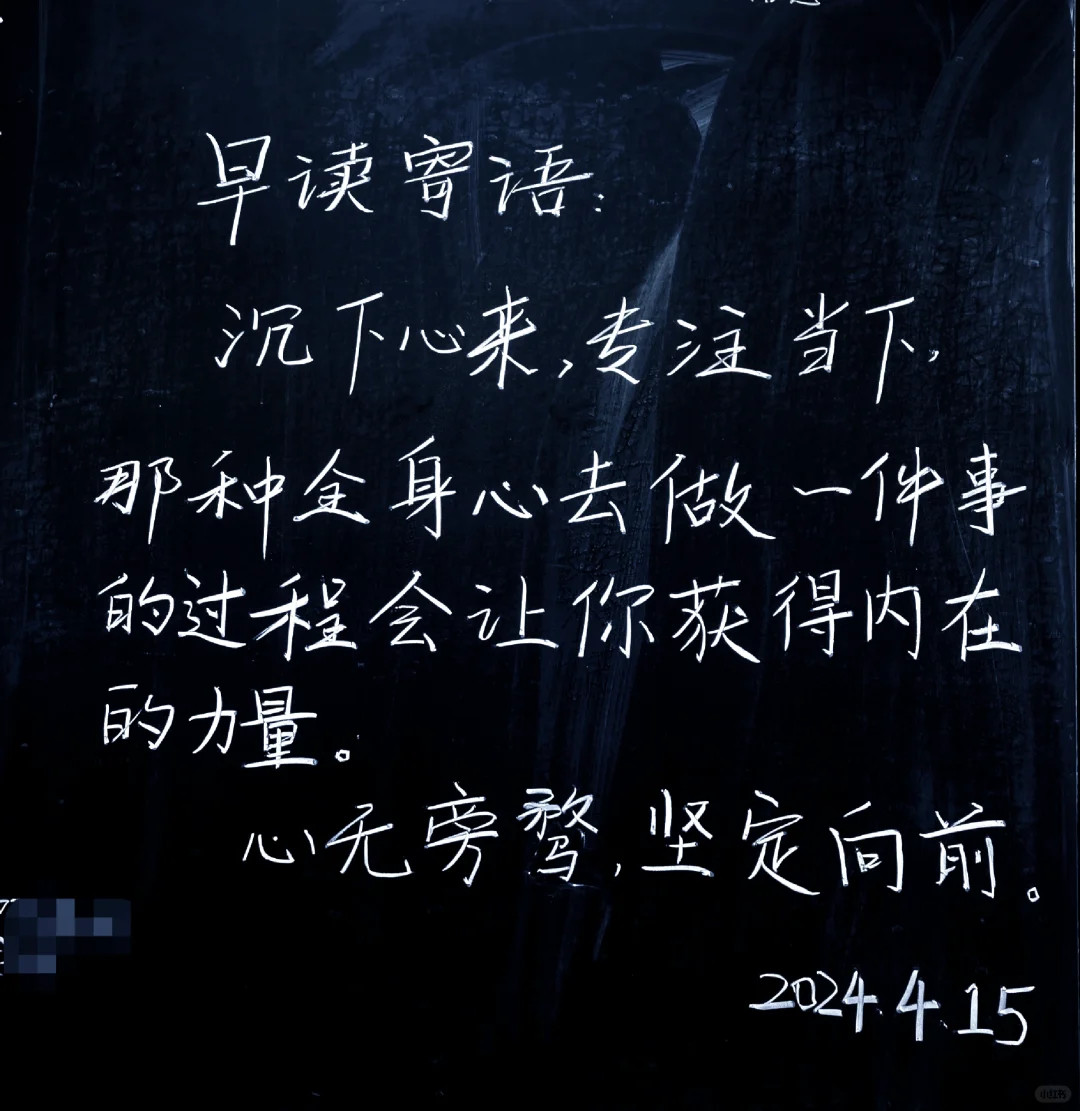 早读寄语:
沉下心来,专注当下,
那种全身心去做一件事
的过程会让你获得内在
的力量。
心无旁骛,坚定向前。
2024.4.15
小红书